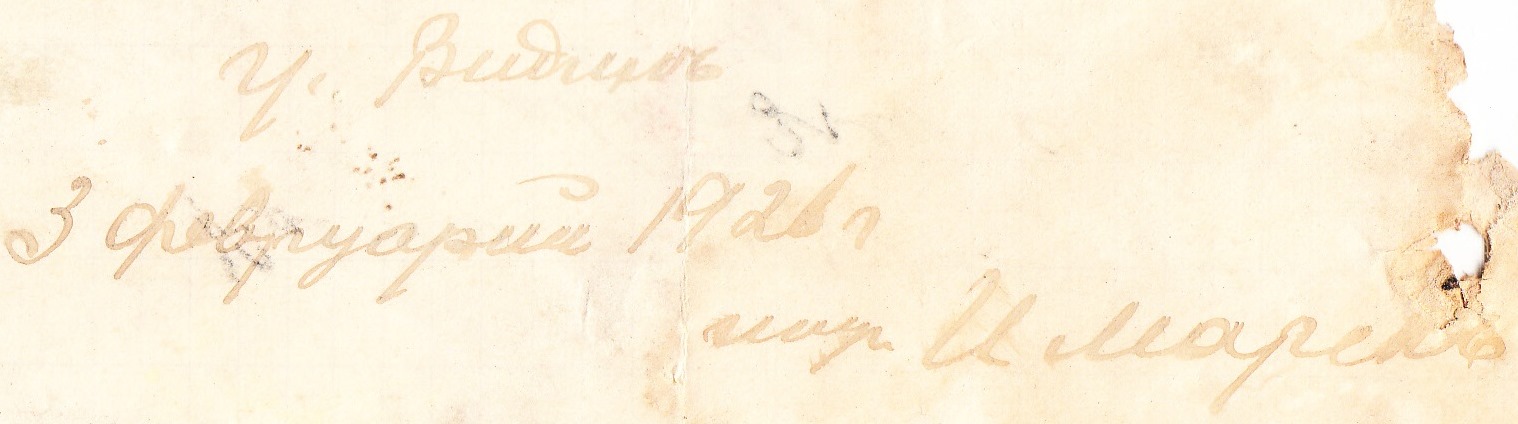 гр. Видинъ
3 февруарий 1926 г
И Маренъ